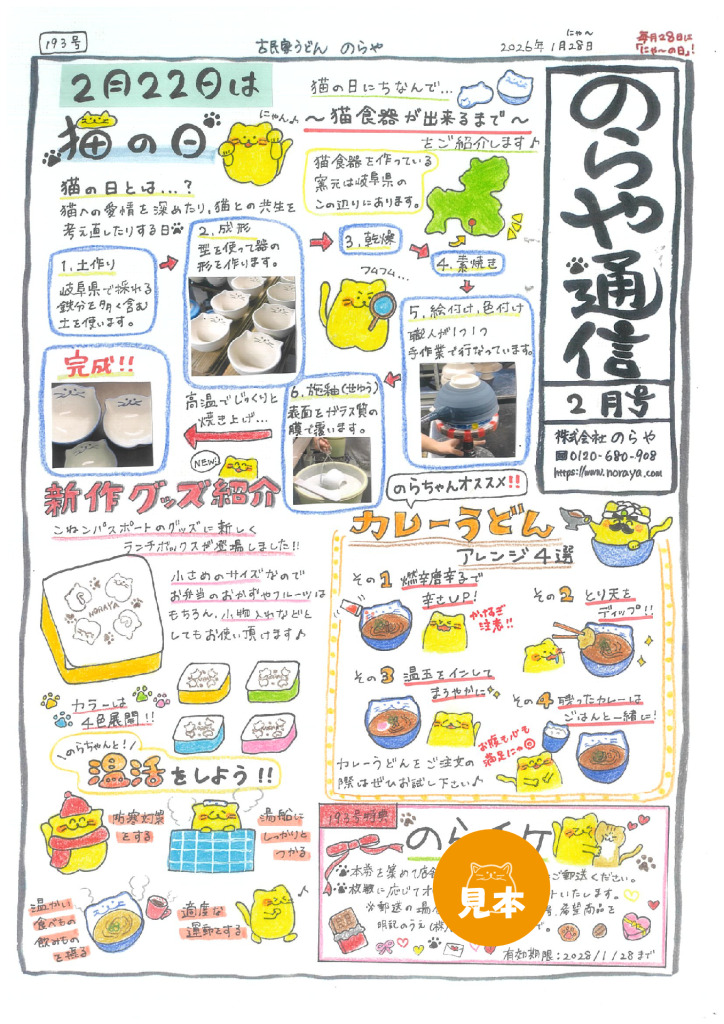 193号
古民家うどん のらや
2026年1月28日
にゃ〜
毎月28日は
「にゃ〜の日」!
のらや通信
2月号
株式会社のらや
0120-680-908
https://www.noraya.com
2月22日は
猫の日
にゃん♪
猫の日とは…?
猫への愛情を深めたり、猫との共生を
考え直したりする日
猫の日にちなんで…
〜猫食器が出来るまで〜
をご紹介します♪
猫食器を作っている
窯元は岐阜県の
この辺りにあります。
1.土作り
岐阜県で採れる
鉄分を多く含む
土を使います。
2.成形
型を使って器の
形を作ります。
3.乾燥
4.素焼き
フムフム…
5.絵付け,色付け
職人が1つ1つ
手作業で行なっています。
6.施釉(せゆう)
表面をガラス質の
膜で覆います。
高温でじっくりと
焼き上げ…
完成!!
NEW!
新作グッズ紹介
こねこパスポートのグッズに新しく
ランチボックスが登場しました!!
NORAYA
小さめのサイズなので
お弁当のおかずやフルーツは
もちろん、小物入れなどと
してもお使い頂けます♪
カラーは
4色展開!!
のらちゃんオススメ!!
カレーうどん
アレンジ4選
その1 燃辛唐辛子で
辛さUP!
かけすぎ
注意!!
その2 とり天を
ディップ!!
その3 温玉をインして
まろやかに
その4 残ったカレーは
ごはんと一緒に!
お腹も心も
満足にゃ
カレーうどんをご注文の
際はぜひお試し下さい♪
\のらちゃんと!/
温活をしよう!!
防寒対策
をする
湯船に
しっかりと
つかる
温かい
食べもの
飲みもの
を摂る
適度な
運動をする
193号特典
のらイケ
本券を集めて店
ご郵送ください。
枚数に応じてオ
トいたします。
※郵送の場
希望商品を
明記のうえ(株)
まで。
見本
有効期限:2028/1/28まで